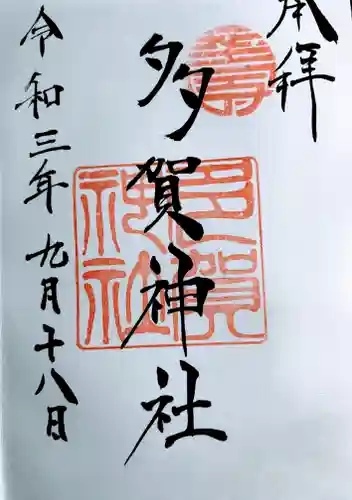 奉拝
多賀神社
令和三年九月十八日
多賀
神社